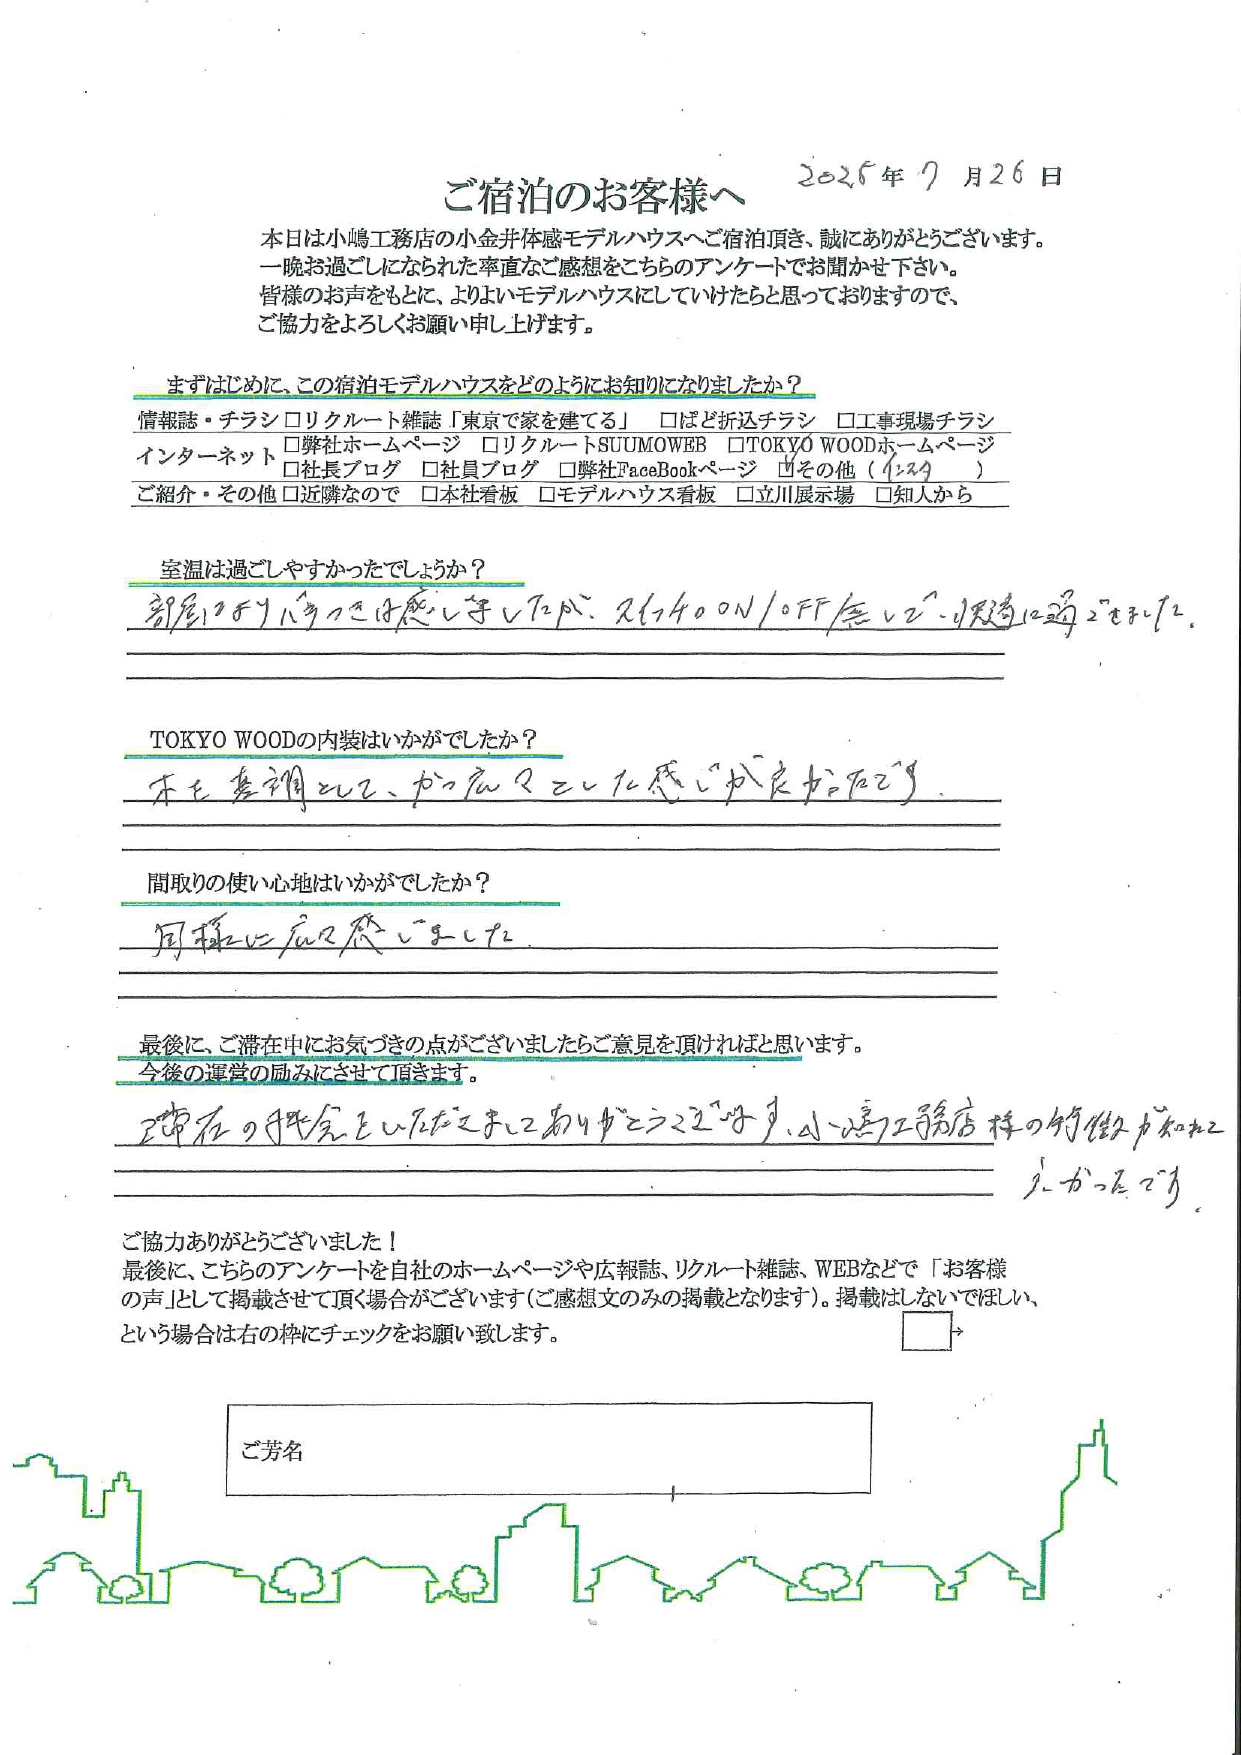 2025年7月26日
ご宿泊のお客様へ
本日は小嶋工務店の小金井体感モデルハウスへご宿泊頂き、誠にありがとうございます。
一晩お過ごしになられた率直なご感想をこちらのアンケートでお聞かせ下さい。
皆様のお声をもとに、よりよいモデルハウスにしていけたらと思っておりますので、
ご協力をよろしくお願い申し上げます。
まずはじめに、この宿泊モデルハウスをどのようにお知りになりましたか？
情報誌・チラシ □リクルート雑誌「東京で家を建てる」 □ぱど折込チラシ □工事現場チラシ
インターネット □弊社ホームページ □リクルートSUUMOWEB □TOKYO WOODホームページ
□社長ブログ □社員ブログ □弊社FaceBookページ ☑その他（インスタ）
ご紹介・その他 □近隣なので □本社看板 □モデルハウス看板 □立川展示場 □知人から
室温は過ごしやすかったでしょうか？
部屋によりバラつきは感じましたが、スイッチのON/OFF無しで、快適に過ごせました。
TOKYO WOODの内装はいかがでしたか？
木を基調として、かつ広々とした感じが良かったです。
間取りの使い心地はいかがでしたか？
同様に広々感じました。
最後に、ご滞在中にお気づきの点がございましたらご意見を頂ければと思います。
今後の運営の励みにさせて頂きます。
ご滞在の機会をいただきましてありがとうございます。小嶋工務店様の特徴が知れて
よかったです。
ご協力ありがとうございました！
最後に、こちらのアンケートを自社のホームページや広報誌、リクルート雑誌、WEBなどで「お客様
の声」として掲載させて頂く場合がございます（ご感想文のみの掲載となります）。掲載はしないでほしい、
という場合は右の枠にチェックをお願い致します。 □→
ご芳名